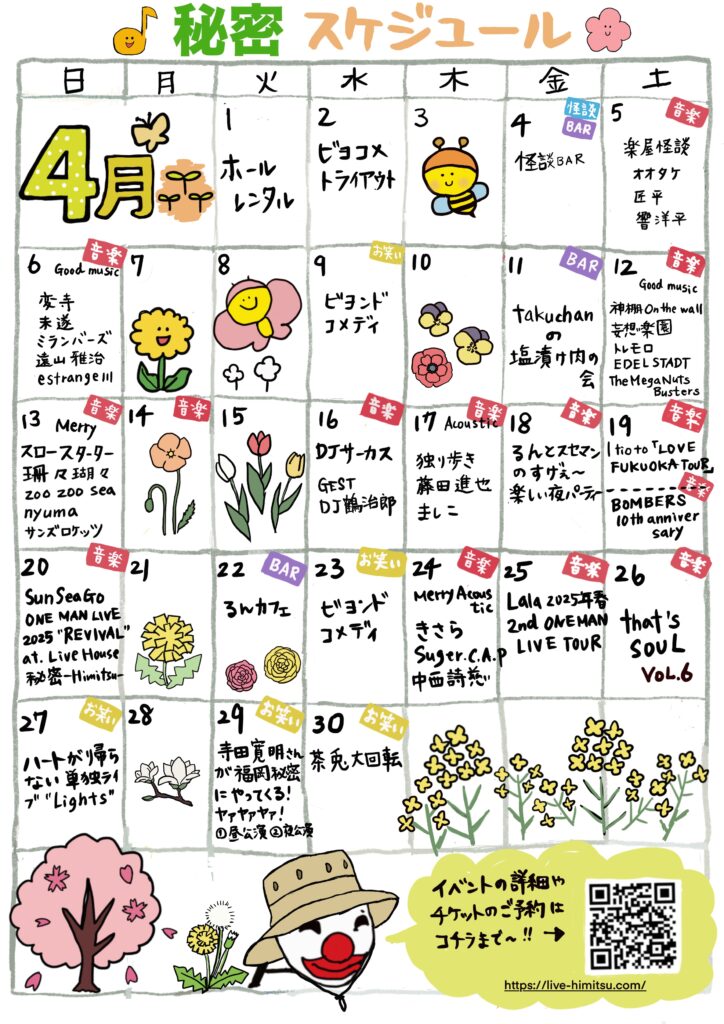 秘密 スケジュール
日 月 火 水 木 金 土
4月
1
ホール
レンタル
2
ビヨコメ
トライアウト
3
4
怪談
BAR
怪談BAR
5
音楽
楽屋怪談
オオタケ
匠平
響洋平
6
音楽
Good music
変寺
未遂
ミランバーズ
遠山雅治
estrange111
7
8
9
お笑い
ビヨンド
コメディ
10
11
BAR
takuchan
の
塩漬け肉の
会
12
音楽
Good music
神棚 On the wall
妄想楽園
トレモロ
EDEL STADT
The MegaNuts
Busters
13
音楽
Merry
スロースターター
珊々瑚々
zoo zoo sea
nyuma
サンズロケッツ
14
音楽
15
16
音楽
DJサーカス
GEST
DJ鶴治郎
17
音楽
Acoustic
独り歩き
藤田進也
ましこ
18
音楽
るんとスセマン
のすげぇ〜
楽しい夜パーティー
19
音楽
1 tio to「LOVE
FUKUOKA TOUR」
音楽
BOMBERS
10th anniver
sary
20
音楽
Sun Sea Go
ONE MAN LIVE
2025 "REVIVAL"
at. Live House
秘密-Himitsu-
21
22
BAR
るんカフェ
23
お笑い
ビヨンド
コメディ
24
音楽
Merry Acous
tic
きさら
Suger.C.A.p
中西詩慈
25
音楽
Lala 2025年春
2nd ONEMAN
LIVE TOUR
26
音楽
that's
SOUL
VOL.6
27
お笑い
ハートが帰ら
ない単独ライ
ブ"Lights"
28
29
お笑い
寺田寛明さん
が福岡秘密
にやってくる!
ヤァヤァヤァ!
①昼公演②夜公演
30
お笑い
茶兎大回転
イベントの詳細や
チケットのご予約は
コチラまで〜!! →
https://live-himitsu.com/